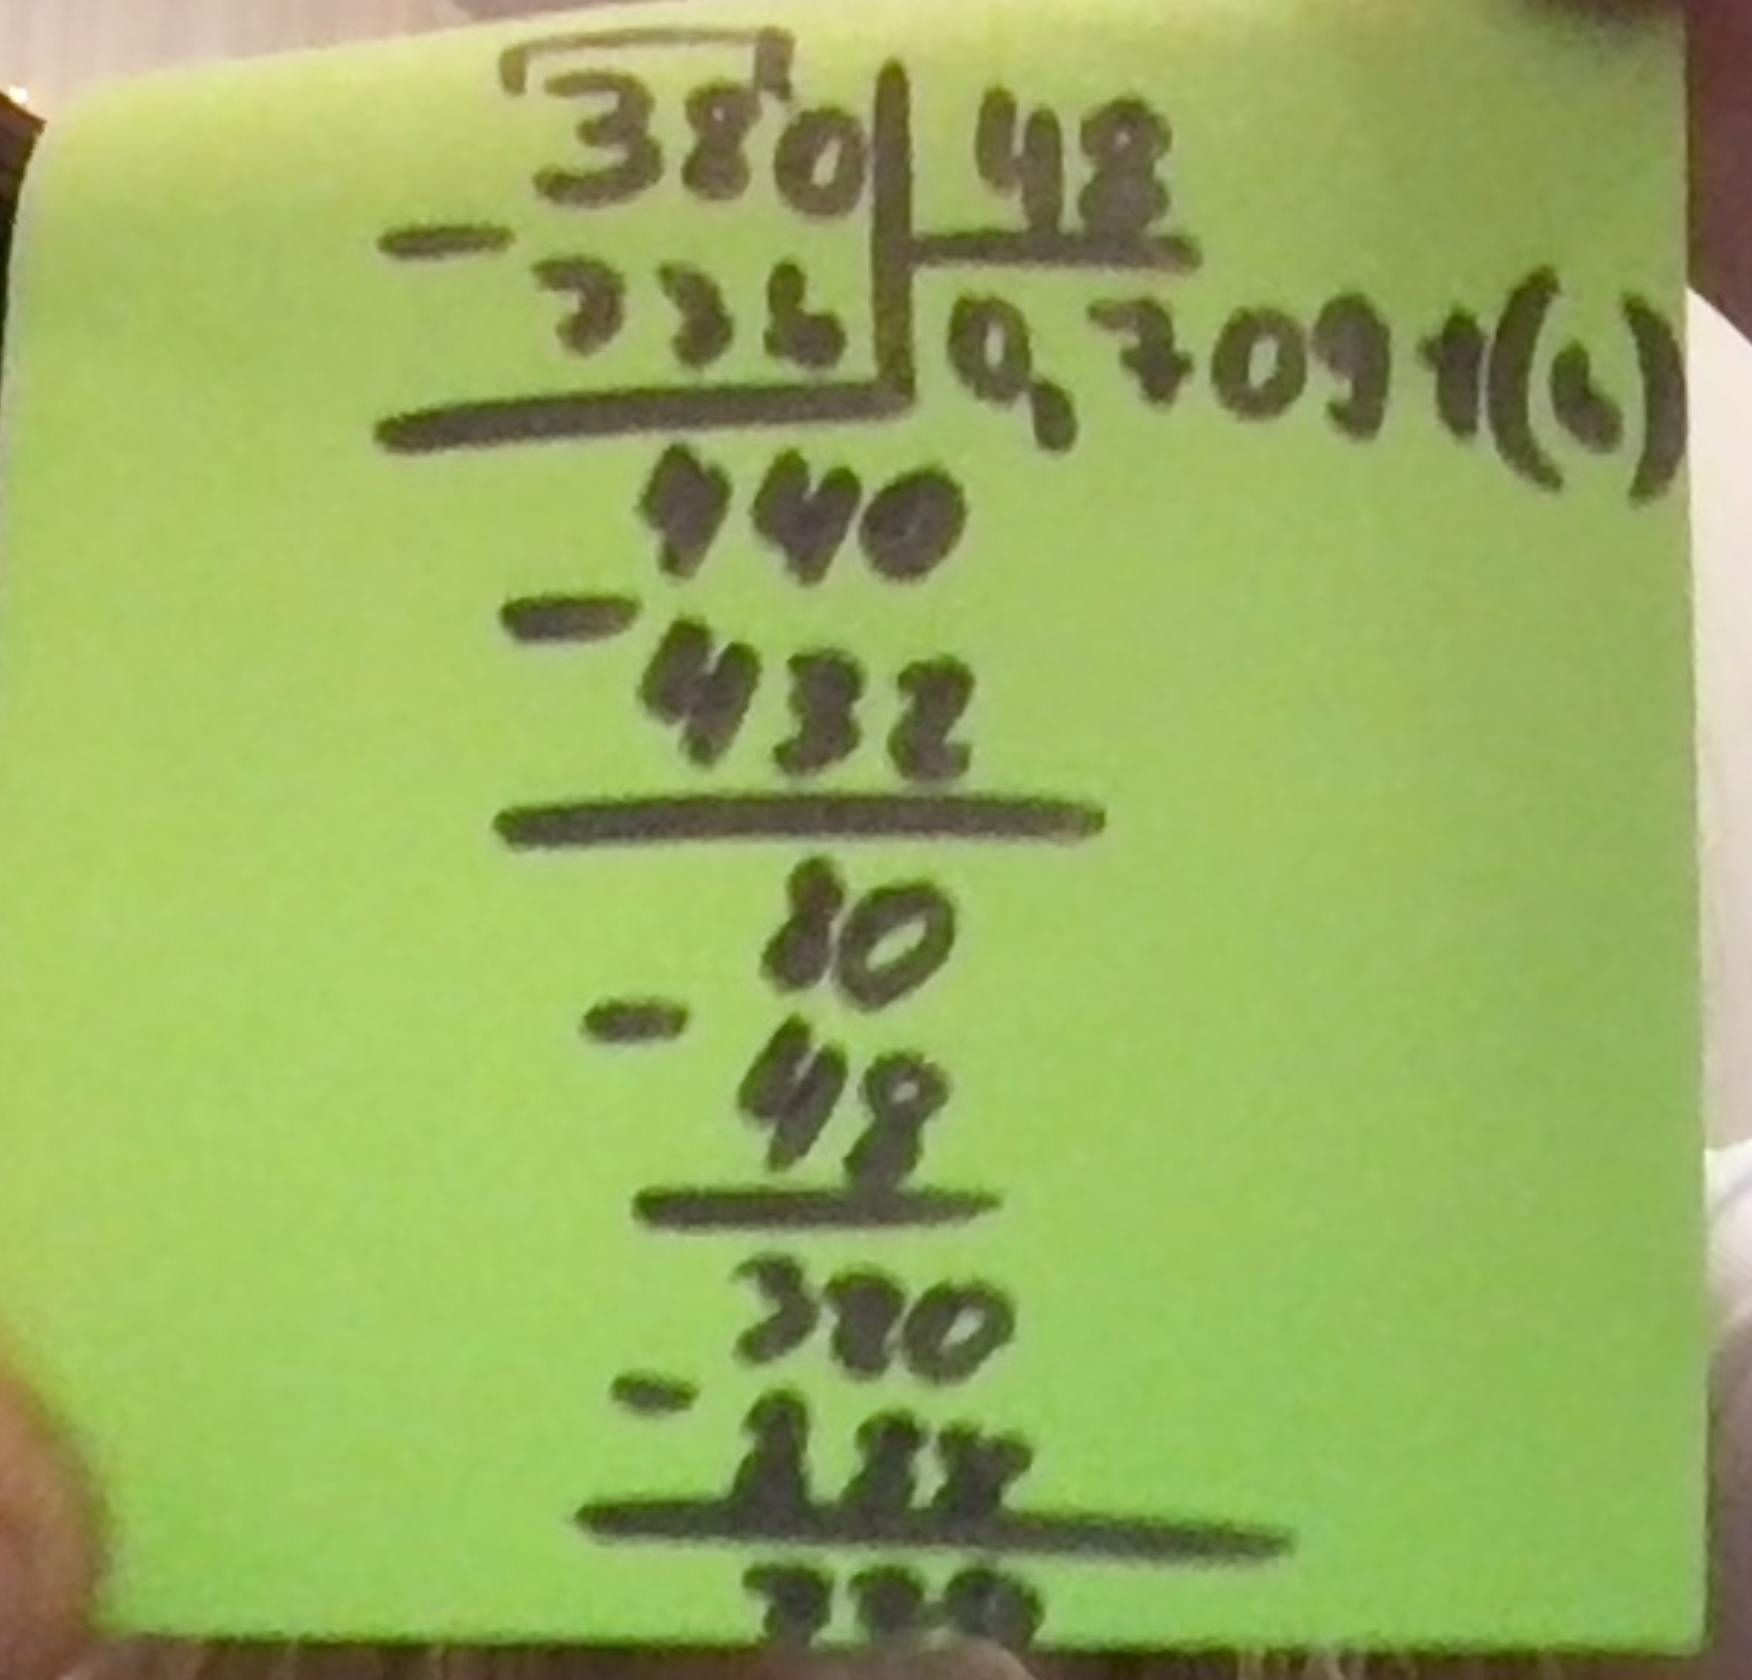 380 48
- 336 0,7091(6)
440
- 432
80
- 48
320
- 288
320